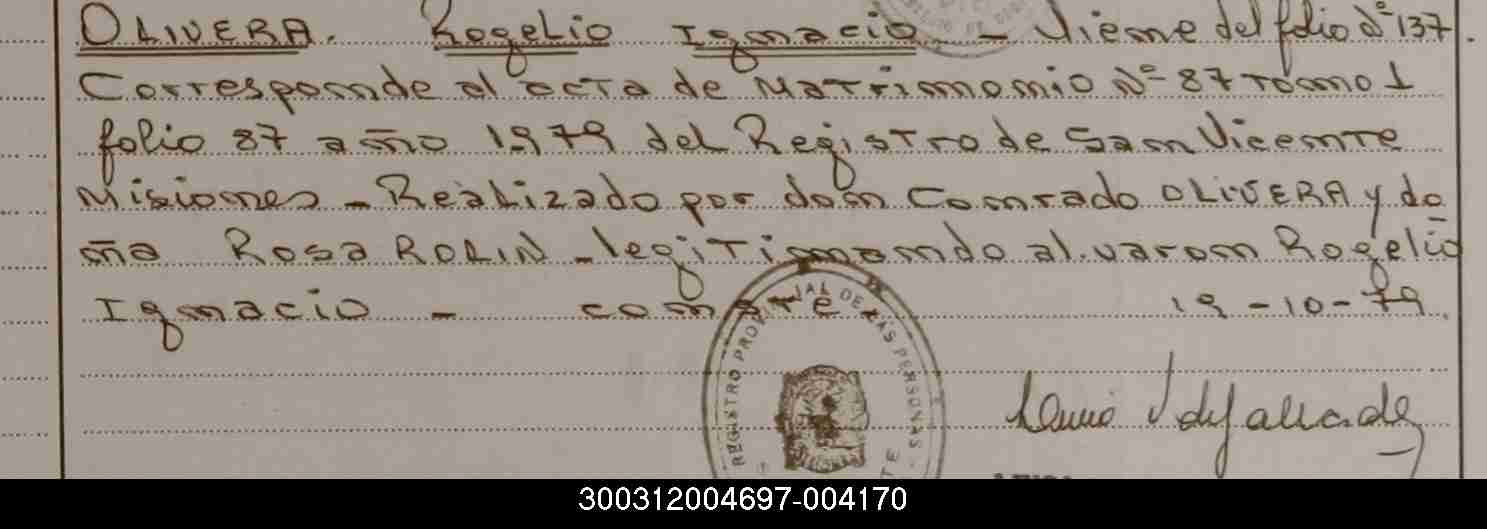 OLIVERA. Rogelio Ignacio - Viene del folio Nº 137.
Corresponde al acta de Matrimonio Nº 87 Tomo 1
folio 87 año 1979 del Registro de San Vicente
Misiones - Realizado por don Conrado OLIVERA y do
ña Rosa ROLIN - legitimando al varon Rogelio
Ignacio - conste 19-10-79.
REGISTRO DE LAS PERSONAS
300312004697-004170